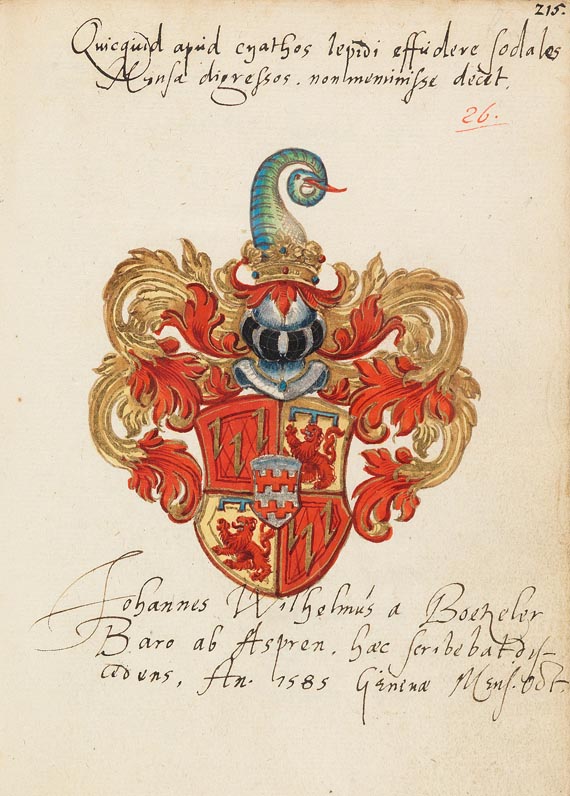 215.
Quicquid apud cyathos lepidi effudere sodales
Mensa digressos. non meminisse decet.
26.
Johannes Wilhelmus a Boetzeler
Baro ab Aspren. hæc scribebat dis-
cedens, An. 1585 Genevæ Mens. Oct.